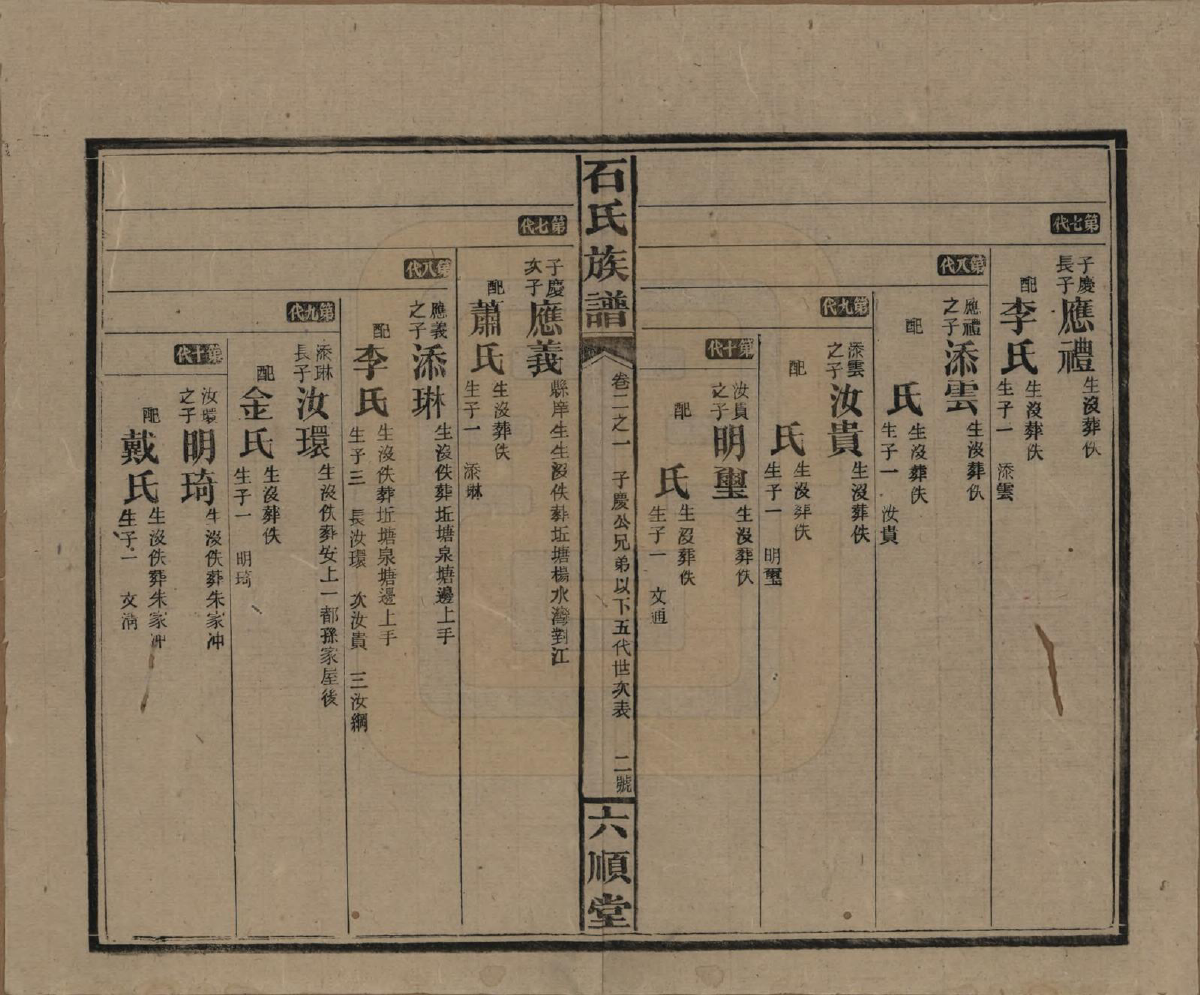 第七代
子慶長子 應禮 生沒葬佚
配 李氏 生沒葬佚
生子一 添雲
第八代
應禮之子 添雲 生沒葬佚
配 氏 生沒葬佚
生子一 汝貴
第九代
添雲之子 汝貴 生沒葬佚
配 氏 生沒葬佚
生子一 明璽
第十代
汝貴之子 明璽 生沒葬佚
配 氏 生沒葬佚
生子一 文通
石氏族譜
卷二之一 子慶公兄弟以下五代世次表 二號
六順堂
第七代
子慶次子 應義 縣庠生生沒佚葬坵塘楊水灣對江
配 蕭氏 生沒葬佚
生子一 添琳
第八代
應義之子 添琳 生沒佚葬坵塘泉塘邊上手
配 李氏 生沒佚葬坵塘泉塘邊上手
生子三 長汝環 次汝貴 三汝綱
第九代
添琳長子 汝環 生沒佚葬安上一都孫家屋後
配 金氏 生沒葬佚
生子一 明琦
第十代
汝環之子 明琦 生沒佚葬朱家冲
配 戴氏 生沒佚葬朱家冲
生子一 文